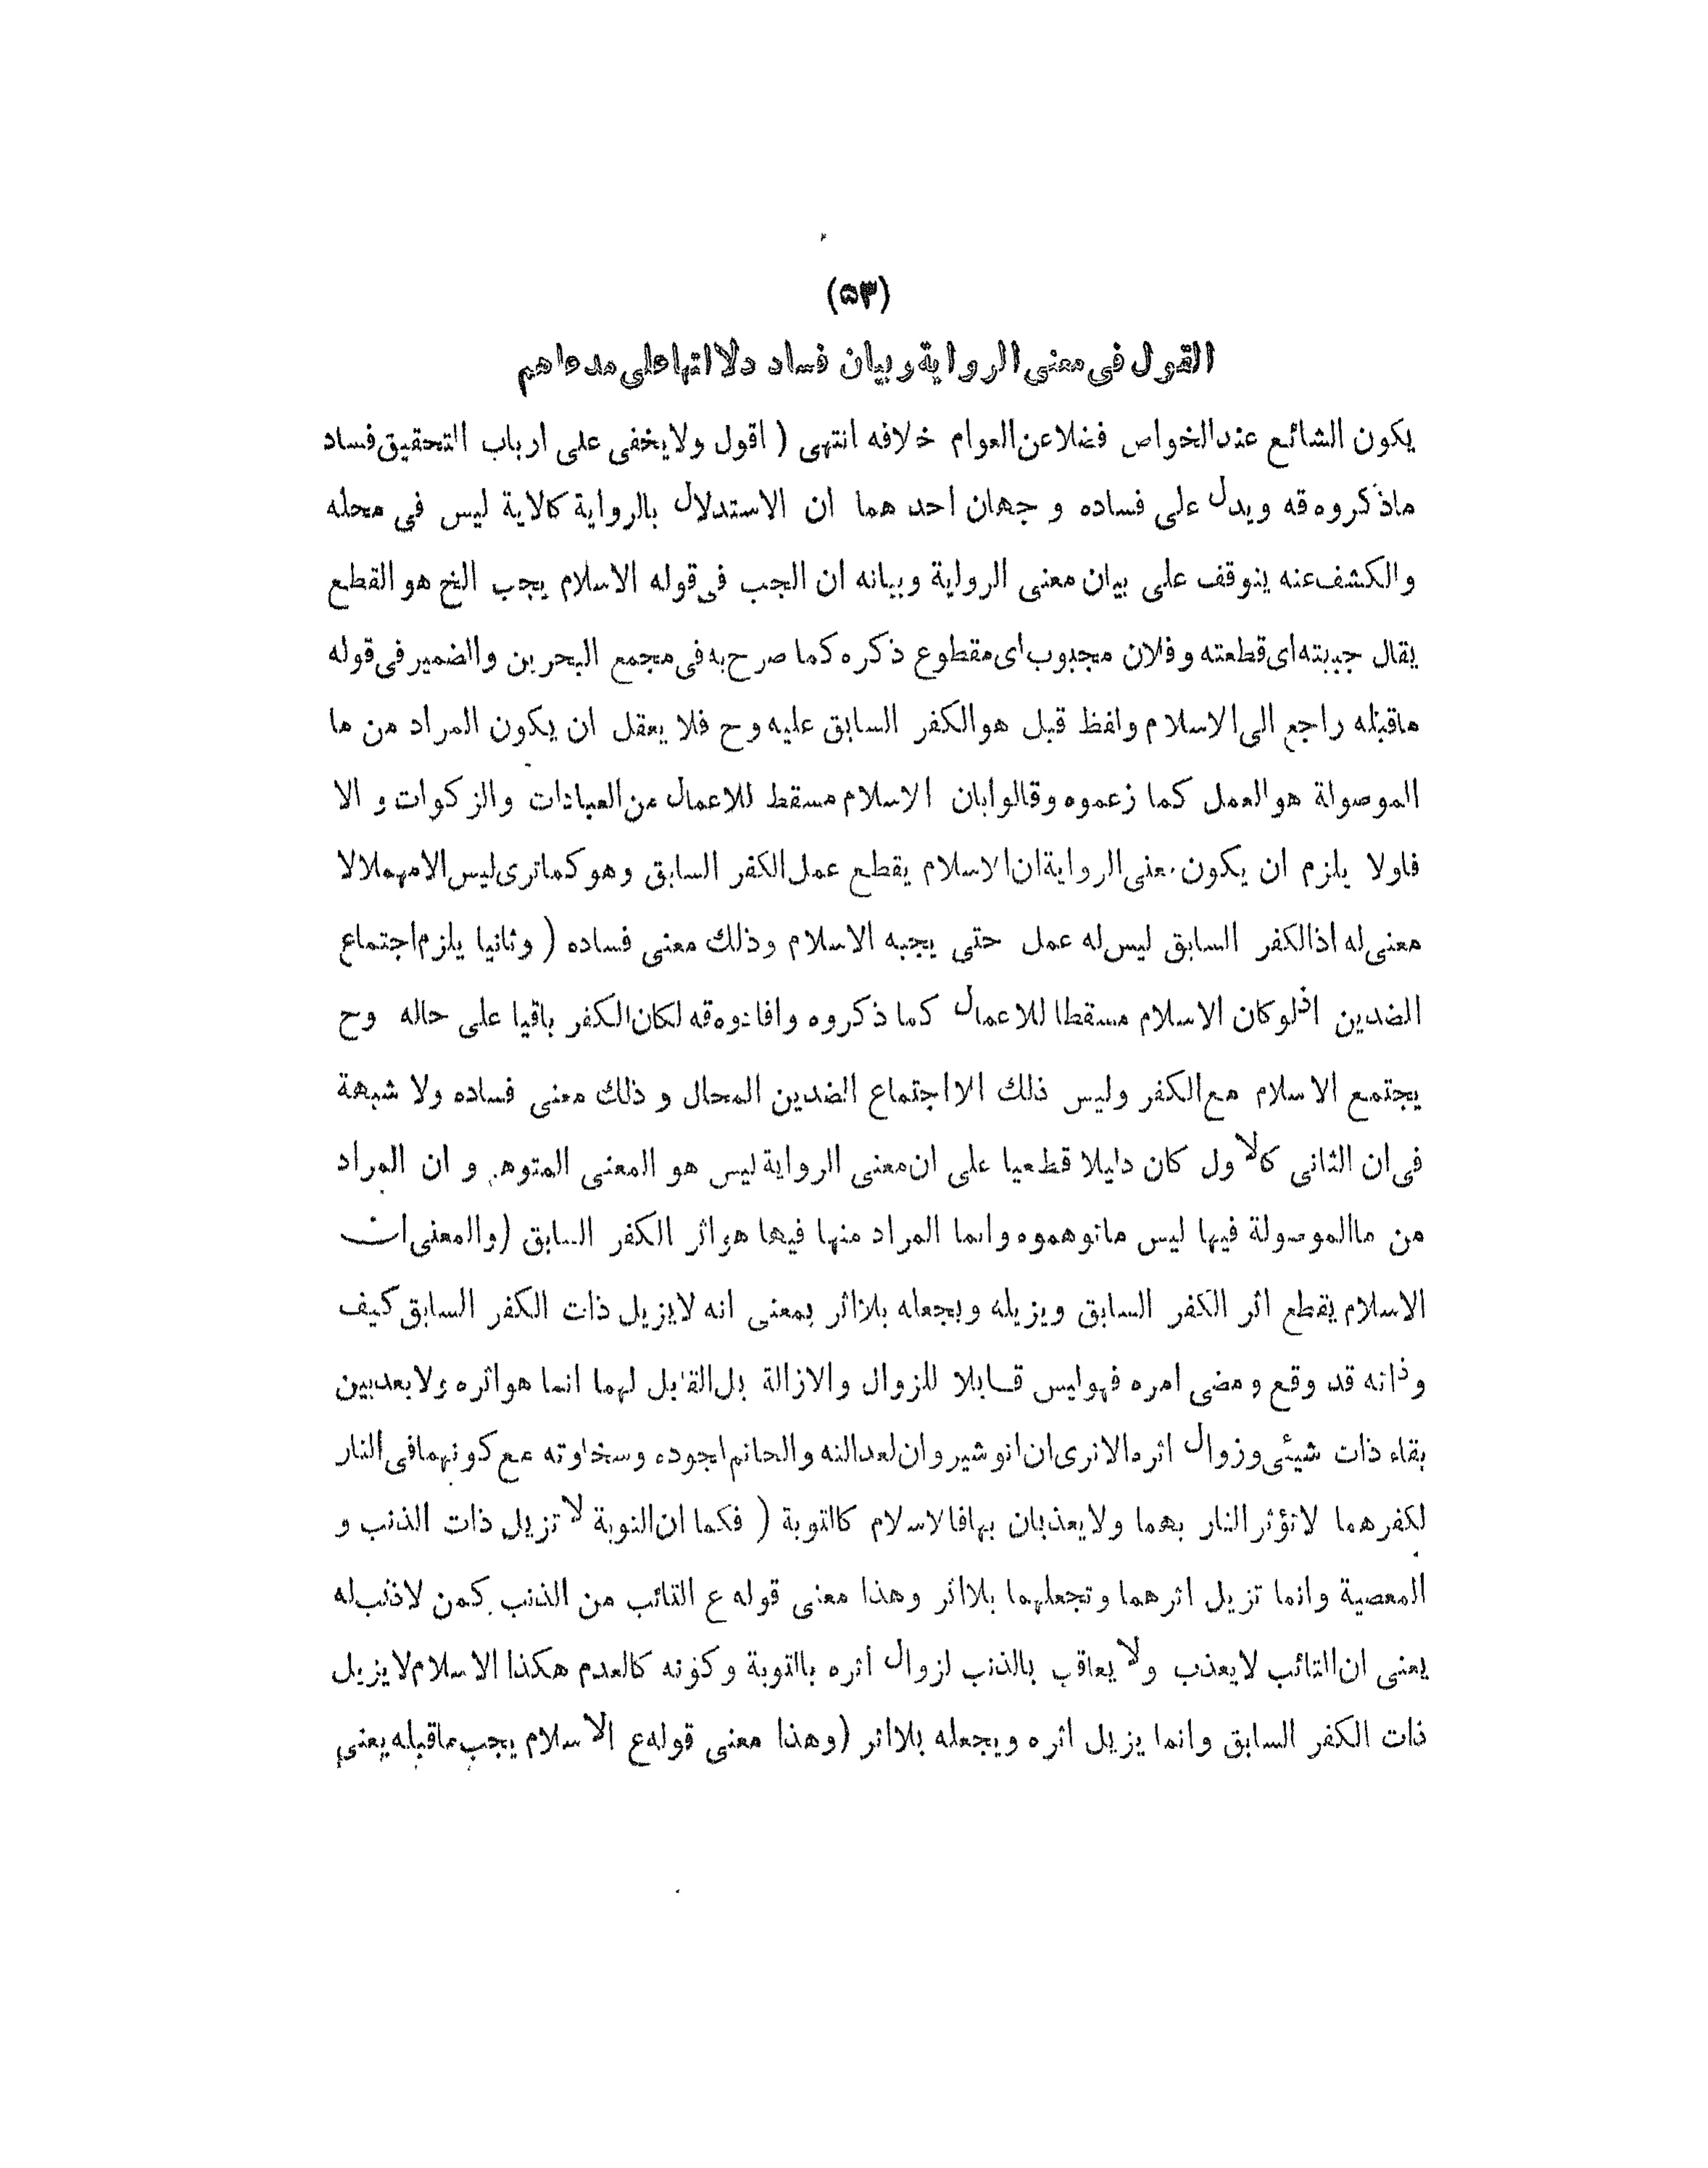 (۵۳)
القول فى معنى الرواية وبيان فساد دلالتها على مدعاهم
يكون الشائع عند الخواص فضلا عن العوام خلافه انتهى ( اقول ولا يخفى على ارباب التحقيق فساد
ماذكروه قه ويدل على فساده و جهان احد هما ان الاستدلال بالرواية كالاية ليس فى محله
والكشف عنه يتوقف على بيان معنى الرواية وبيانه ان الجب فى قوله الاسلام يجب الخ هو القطع
يقال جببته اى قطعته وفلان مجبوب اى مقطوع ذكره كما صرح به فى مجمع البحرين والضمير فى قوله
ماقبله راجع الى الاسلام ولفظ قبل هو الكفر السابق عليه وح فلا يعقل ان يكون المراد من ما
الموصولة هو العمل كما زعموه وقالوا بان الاسلام مسقط للاعمال من العبادات والزكوات و الا
فاولا يلزم ان يكون معنى الرواية ان الاسلام يقطع عمل الكفر السابق وهو كماترى ليس الامهملا لا
معنى له اذالكفر السابق ليس له عمل حتى يجبه الاسلام وذلك معنى فساده ( وثانيا يلزم اجتماع
الضدين اذلو كان الاسلام مسقطا للاعمال كما ذكروه وافادوه قه لكان الكفر باقيا على حاله وح
يجتمع الاسلام مع الكفر وليس ذلك الا اجتماع الضدين المحال و ذلك معنى فساده ولا شبهة
فى ان الثانى كالاول كان دليلا قطعيا على ان معنى الرواية ليس هو المعنى المتوهم و ان المراد
من ما الموصولة فيها ليس ماتوهموه وانما المراد منها فيها هو اثر الكفر السابق (والمعنى ان
الاسلام يقطع اثر الكفر السابق ويزيله ويجعله بلااثر بمعنى انه لايزيل ذات الكفر السابق كيف
وذاته قد وقع ومضى امره فهوليس قابلا للزوال والازالة بل القابل لهما انما هو اثره ولا بعد بين
بقاء ذات شيئى وزوال اثره الاترى ان انو شيروان لعدالته والحاتم لجوده وسخاوته مع كونهما فى النار
لكفرهما لاتؤثر النار بهما ولايعذبان بها فالاسلام كالتوبة ( فكما ان التوبة لا تزيل ذات الذنب و
المعصية وانما تزيل اثرهما وتجعلهما بلااثر وهذا معنى قوله ع التائب من الذنب كمن لاذنب له
يعنى ان التائب لايعذب ولا يعاقب بالذنب لزوال اثره بالتوبة وكونه كالعدم هكذا الاسلام لايزيل
ذات الكفر السابق وانما يزيل اثره ويجعله بلااثر (وهذا معنى قوله ع الاسلام يجب ماقبله يعنى